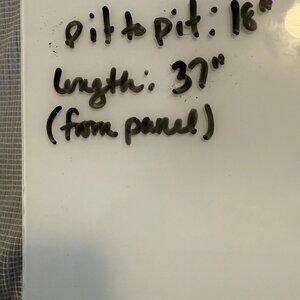 pit to pit: 18"
length: 37"
(from panel)